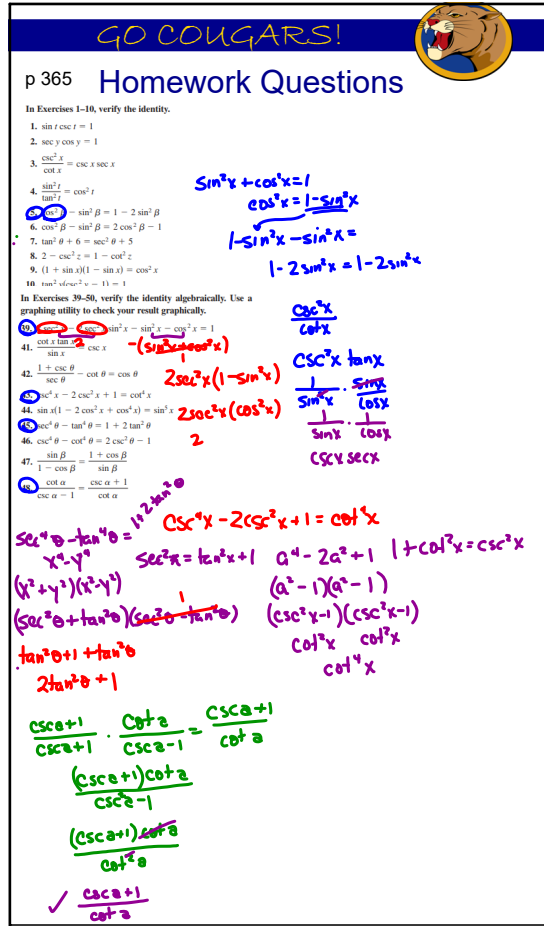 GO COUGARS!
p 365 Homework Questions
In Exercises 1–10, verify the identity.
1. sin t csc t = 1
2. sec y cos y = 1
3. csc² x / cot x = csc x sec x
4. sin² t / tan² t = cos² t
5. cos² β − sin² β = 1 − 2 sin² β
6. cos² β − sin² β = 2 cos² β − 1
7. tan² θ + 6 = sec² θ + 5
8. 2 − csc² z = 1 − cot² z
9. (1 + sin x)(1 − sin x) = cos² x
10. tan² y(csc² y − 1) = 1
sin²x + cos²x = 1
cos²x = 1 − sin²x
1 − sin²x − sin²x =
1 − 2 sin²x = 1 − 2 sin²x
In Exercises 39–50, verify the identity algebraically. Use a
graphing utility to check your result graphically.
39. sec² x − 2 sec² x sin² x − sin² x − cos² x = 1
41. cot x tan x / sin x = csc x
42. (1 + csc θ) / sec θ − cot θ = cos θ
43. csc⁴ x − 2 csc² x + 1 = cot⁴ x
44. sin x(1 − 2 cos² x + cos⁴ x) = sin⁵ x
45. sec⁴ θ − tan⁴ θ = 1 + 2 tan² θ
46. csc⁴ θ − cot⁴ θ = 2 csc² θ − 1
47. sin β / (1 − cos β) = (1 + cos β) / sin β
48. cot α / (csc α − 1) = (csc α + 1) / cot α
2
−(sin²x + cos²x)
1
2sec²x(1 − sin²x)
2sec²x(cos²x)
2
csc²x / cotx
csc²x tanx
1/sin²x · sinx/cosx
1/sinx · 1/cosx
cscx secx
sec⁴θ − tan⁴θ = 1 + 2tan²θ
x⁴ − y⁴
(x² + y²)(x² − y²)
(sec²θ + tan²θ)(sec²θ − tan²θ)
1
tan²θ + 1 + tan²θ
2tan²θ + 1
csc⁴x − 2csc²x + 1 = cot⁴x
sec²x = tan²x + 1
a⁴ − 2a² + 1
1 + cot²x = csc²x
(a² − 1)(a² − 1)
(csc²x − 1)(csc²x − 1)
cot²x cot²x
cot⁴x
csca+1 / csca+1 · cota / csca−1 = csca+1 / cota
(csca+1)cota / csc²a−1
(csca+1)cota / cot²a
✓ csca+1 / cota